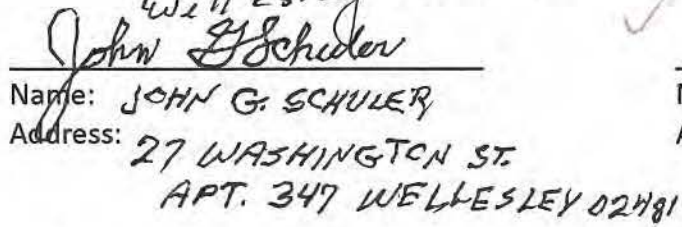 John G Schuler
Name: JOHN G. SCHULER
Address: 27 WASHINGTON ST.
APT. 347 WELLESLEY 02481